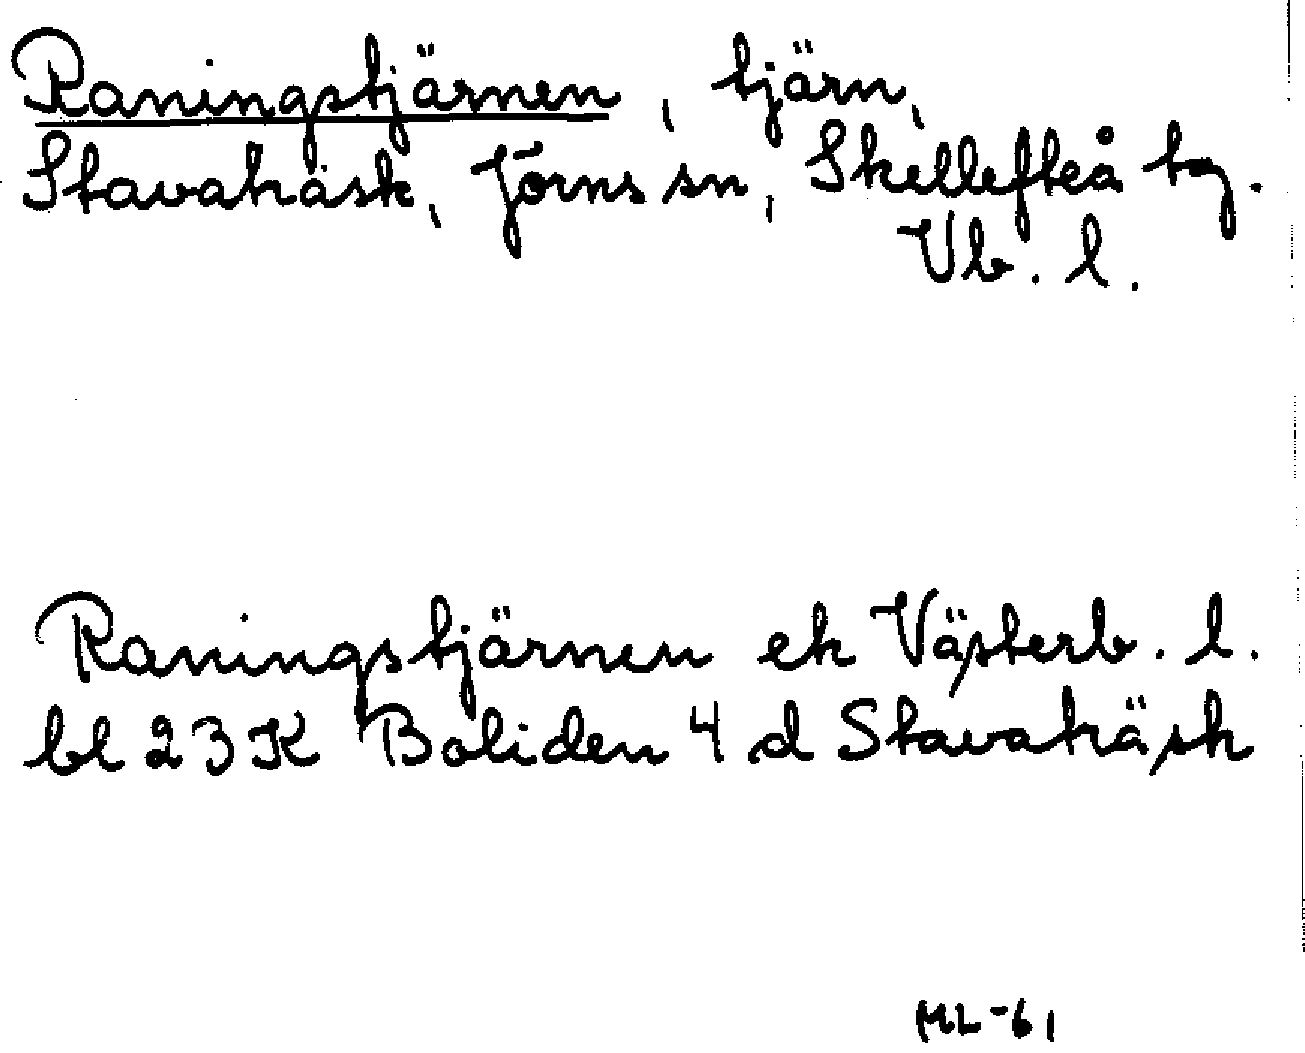 Raningstjärnen, tjärn,
Stavaträsk, Jörns sn, Skellefteå tg.
Vb. l.
Raningstjärnen ek Västerb. l.
bl 23K Boliden 4 d Stavaträsk
ML-61